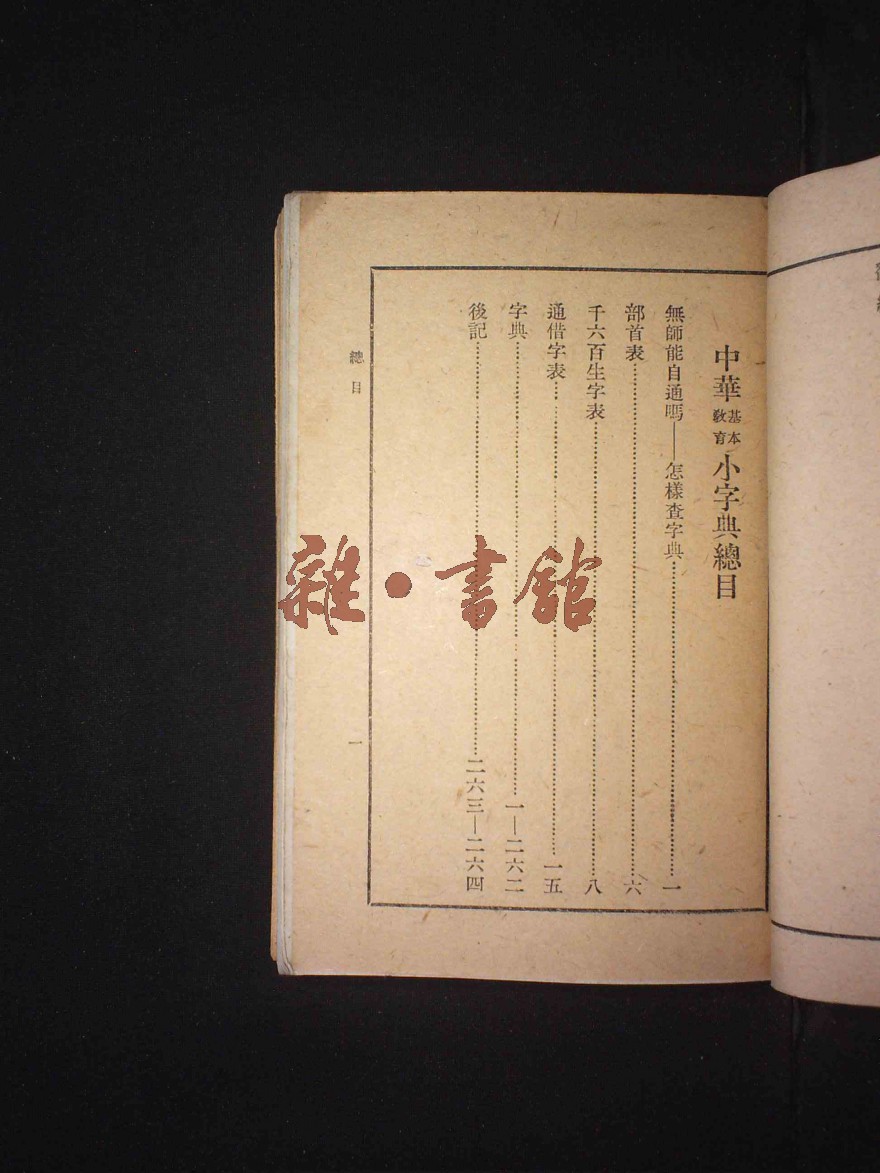 中華基本教育小字典總目
無師能自通嗎——怎樣查字典……一
部首表……六
千六百生字表……八
通借字表……一五
字典……一—二六二
後記……二六三—二六四
總目
一
雜·書館